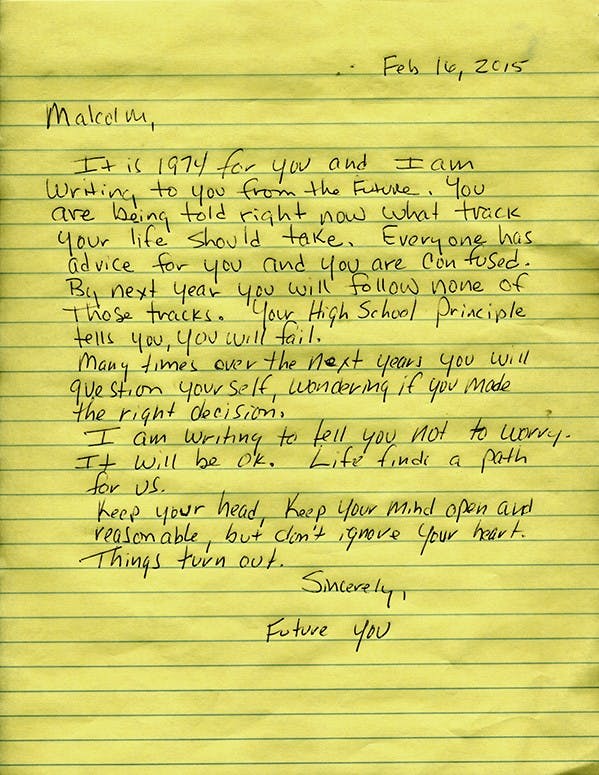 Feb 16, 2015
Malcolm,
It is 1974 for you and I am
writing to you from the Future. You
are being told right now what track
your life should take. Everyone has
advice for you and you are confused.
By next year you will follow none of
those tracks. Your High School Principle
tells you, you will fail.
Many times over the next years you will
question yourself, wondering if you made
the right decision.
I am writing to tell you not to worry.
It will be ok. Life finds a path
for us.
Keep your head, Keep your mind open and
reasonable, but don't ignore your heart.
Things turn out.
Sincerely,
Future you